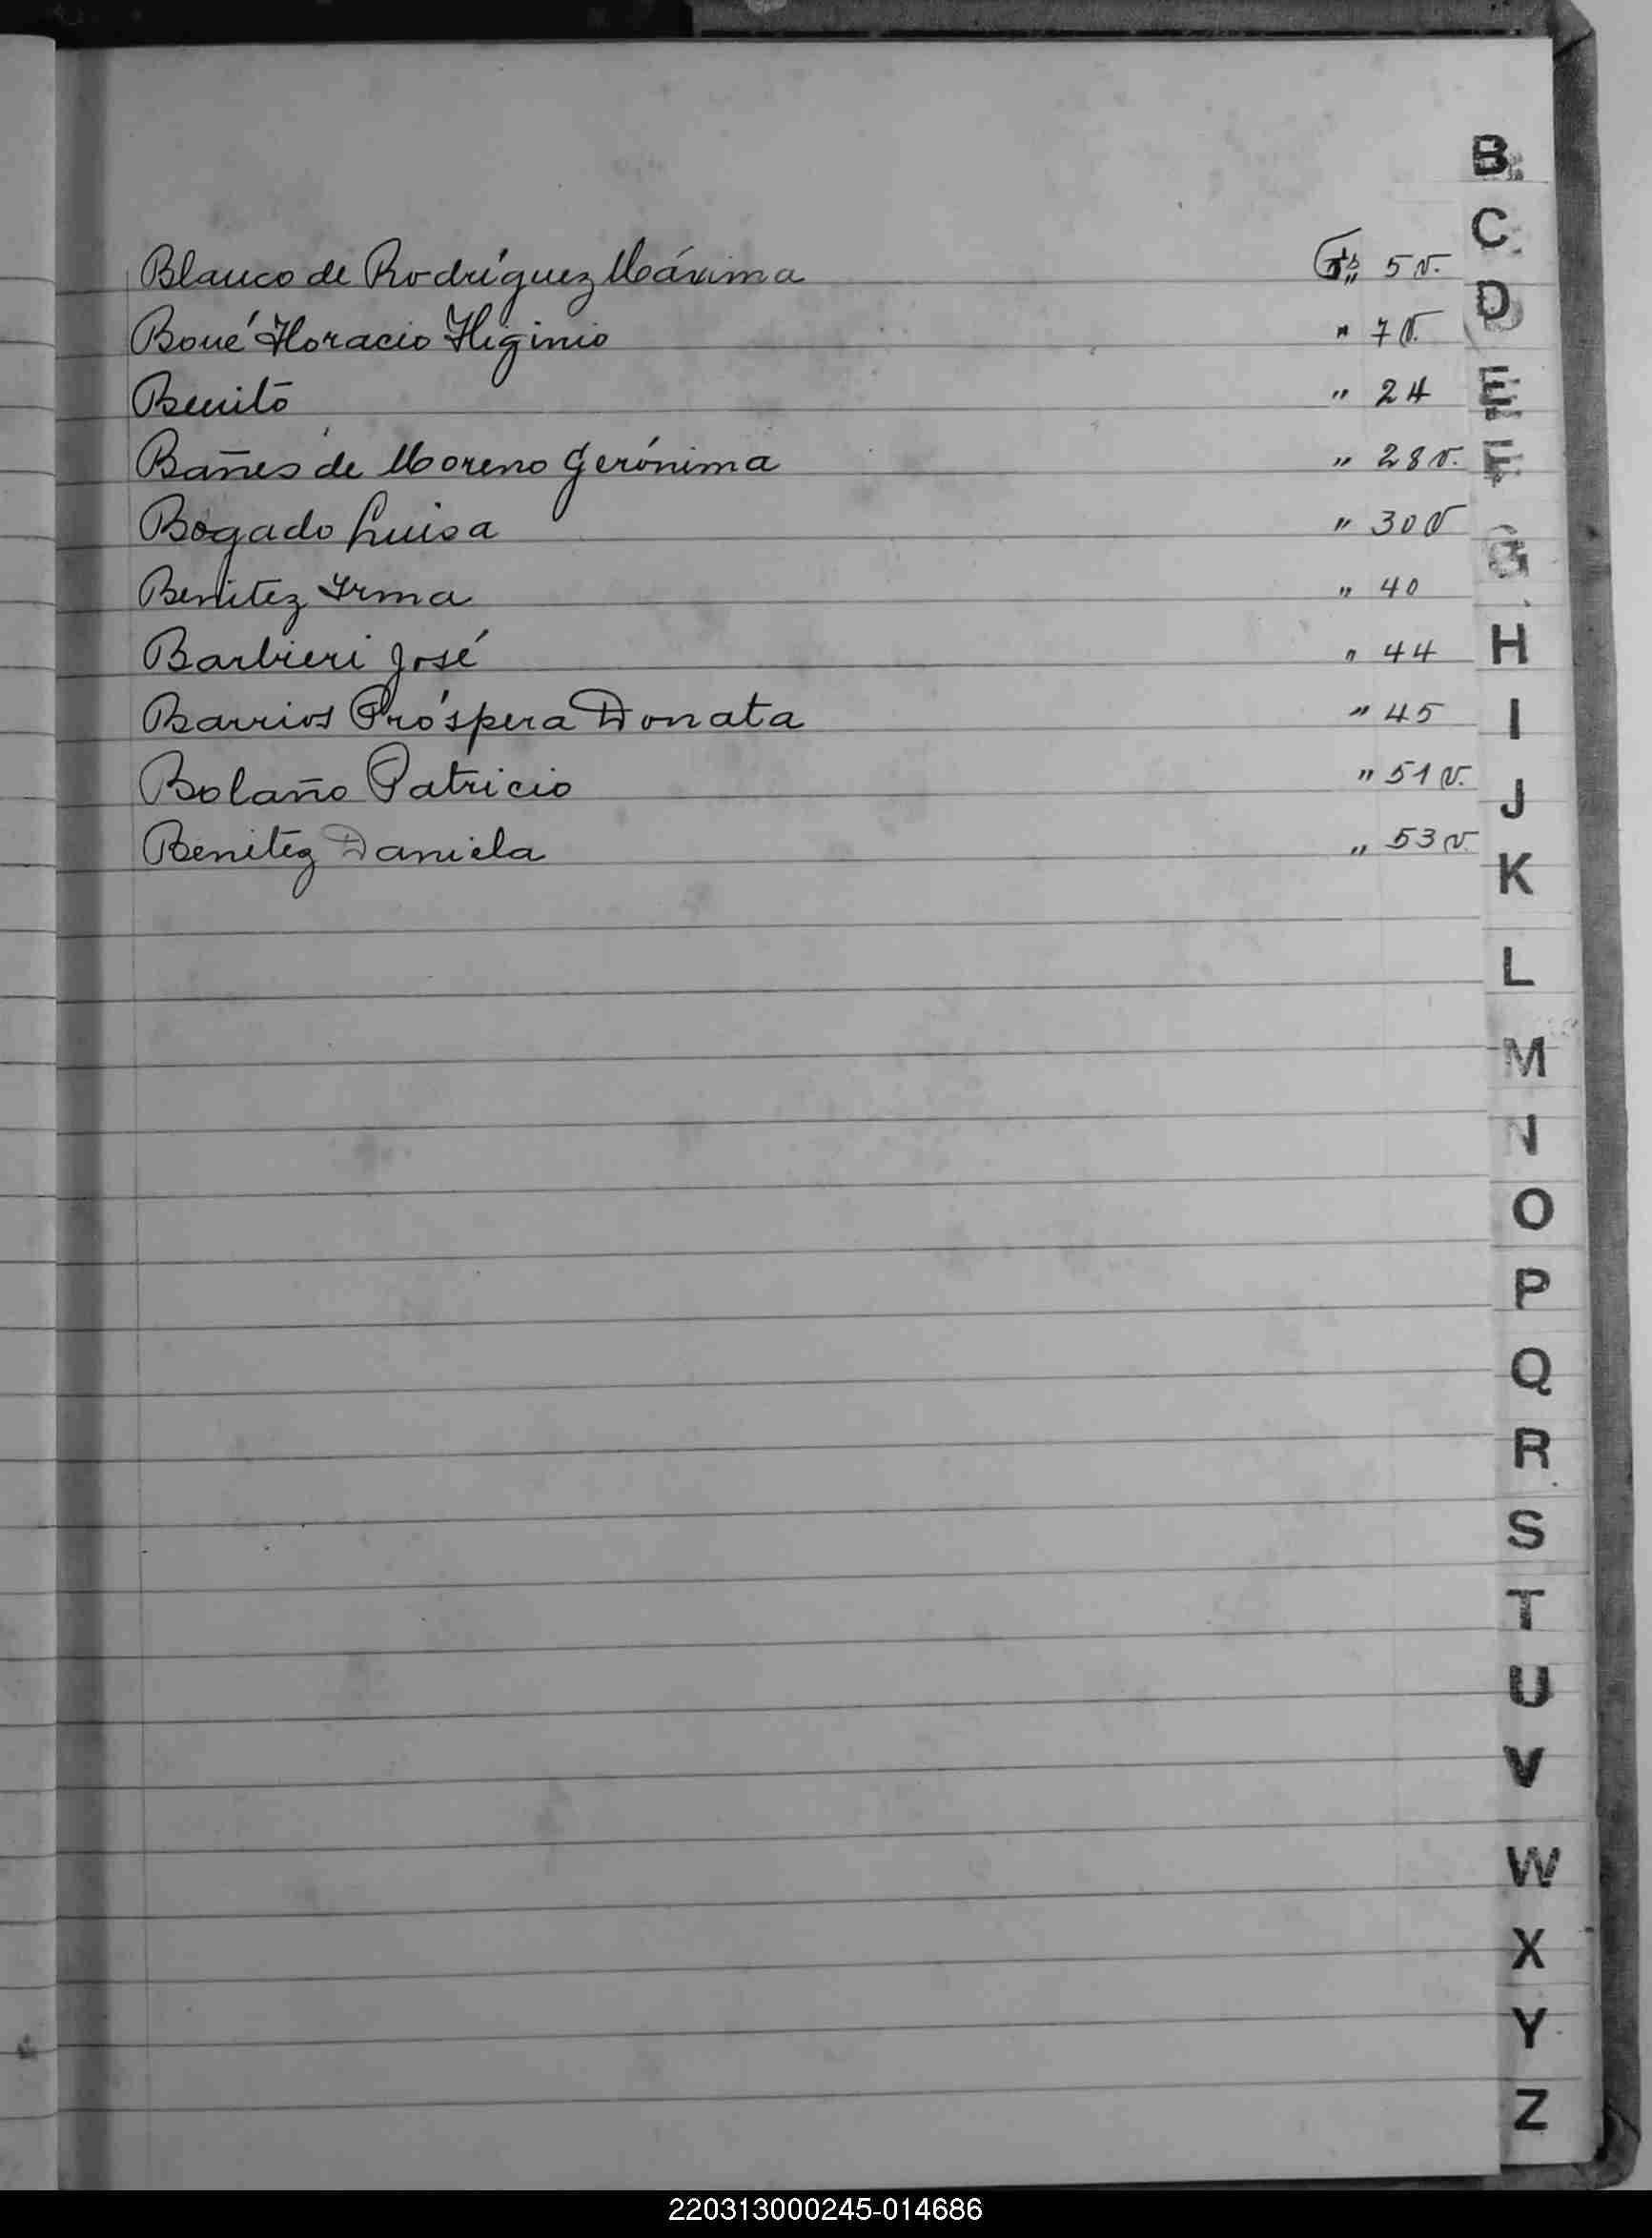 B
C
Blanco de Rodríguez Máxima Fs 5 v.
D
Boué Horacio Higinio " 7 v.
E
Benito " 24
Bañes de Moreno Gerónima " 28 v.
F
Bogado Luisa " 30 v
G
Benitez Irma " 40
Barbieri José " 44
H
Barrios Próspera Donata " 45
I
Bolaño Patricio " 51 v.
J
Benitez Daniela " 53 v.
K
L
M
N
O
P
Q
R
S
T
U
V
W
X
Y
Z
220313000245-014686